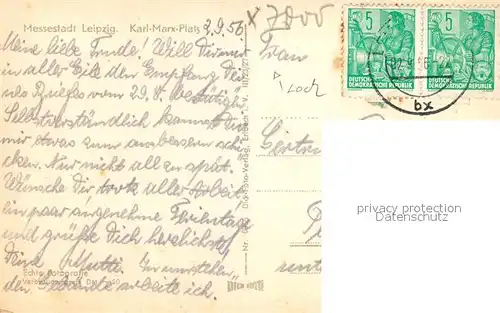 Messestadt Leipzig. Karl-Marx-Platz
2.9.56
x 7000
Meine liebe Trude! Will Dir nur
in aller Eile den Empfang Dei
nes Briefes vom 29.8. bestätigen
Selbstverständlich kannst Du
mir etwas zum ausbessern schi
cken. Nur nicht all zu spät.
Wünsche Dir trotz aller Arbeit
ein paar angenehme Ferientage
und grüße Dich herzlichst
Deine Mutti. In umstehen
den Gebäude arbeite ich.
Echte Fotografie
Frau
Loch
Gertru
5 5
DEUTSCHE DEUTSCHE
DEMOKRATISCHE REPUBLIK DEMOKRATISCHE REPUBLIK
bx
privacy protection
Datenschutz